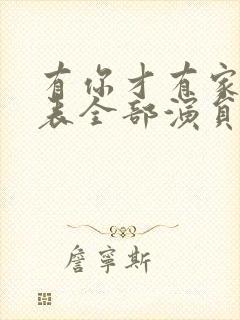 有你才有家
表全部演員
詹寧斯